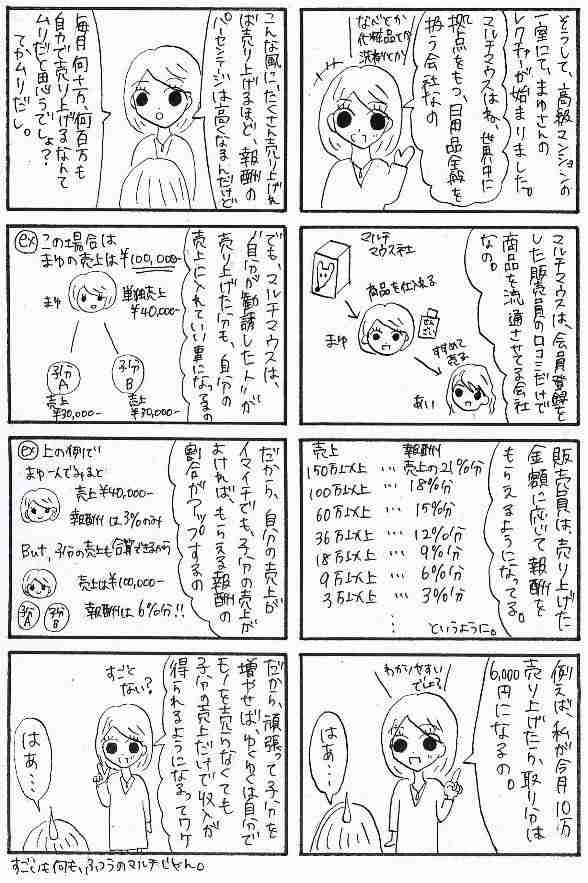 そうして、高級マンションの
一室にて、まゆさんの
レクチャーが始まりました。
マルチマウスはね、世界中に
拠点をもつ、日用品全般を
扱う会社なの
なべとか
化粧品とか
洗剤とか
マルチマウスは、会員登録を
した販売員の口コミだけで
商品を流通させてる会社
なの。
マルチ
マウス社
商品を仕入れる
まゆ
せんざい
すすめて
売る
あい
販売員は、売り上げた
金額に応じて報酬を
もらえるようになってる。
売上 報酬
150万以上 … 売上の21%分
100万以上 … 18%分
60万以上 … 15%分
36万以上 … 12%分
18万以上 … 9%分
9万以上 … 6%分
3万以上 … 3%分
というように。
例えば、私が今月10万
売り上げたら、取り分は
6,000円になるの。
わかりやすい
でしょ?
はあ…
こんな風に、たくさん売り上げれ
ば売り上げるほど、報酬の
パーセンテージは高くなるんだけど
毎月何十万、何百万も
自力で売り上げるなんて
ムリだと思うでしょ?
てかムリだし。
でも、マルチマウスは、
“自分が勧誘した人”が
売り上げた分も、自分の
売上に入れていい事になってるの
ex この場合は
まゆの売上は¥100,000-
まゆ
単独売上
¥40,000-
子分
A
子分
B
売上
¥30,000-
売上
¥30,000-
だから、自分の売上が
イマイチでも、子分の売上が
よければ、もらえる報酬の
割合がアップするの
ex 上の例で
まゆ一人でみると
売上¥40,000-
報酬は3%のみ
But, 子分の売上も合算できるから
売上は¥100,000-
報酬は6%分!!
子分
A
子分
B
だから、頑張って子分を
増やせば、ゆくゆくは自分で
モノを売らなくても
子分の売上だけで収入が
得られるようになるってワケ
すごく
ない?
はあ…
すごいも何も、ふつうのマルチじゃん。